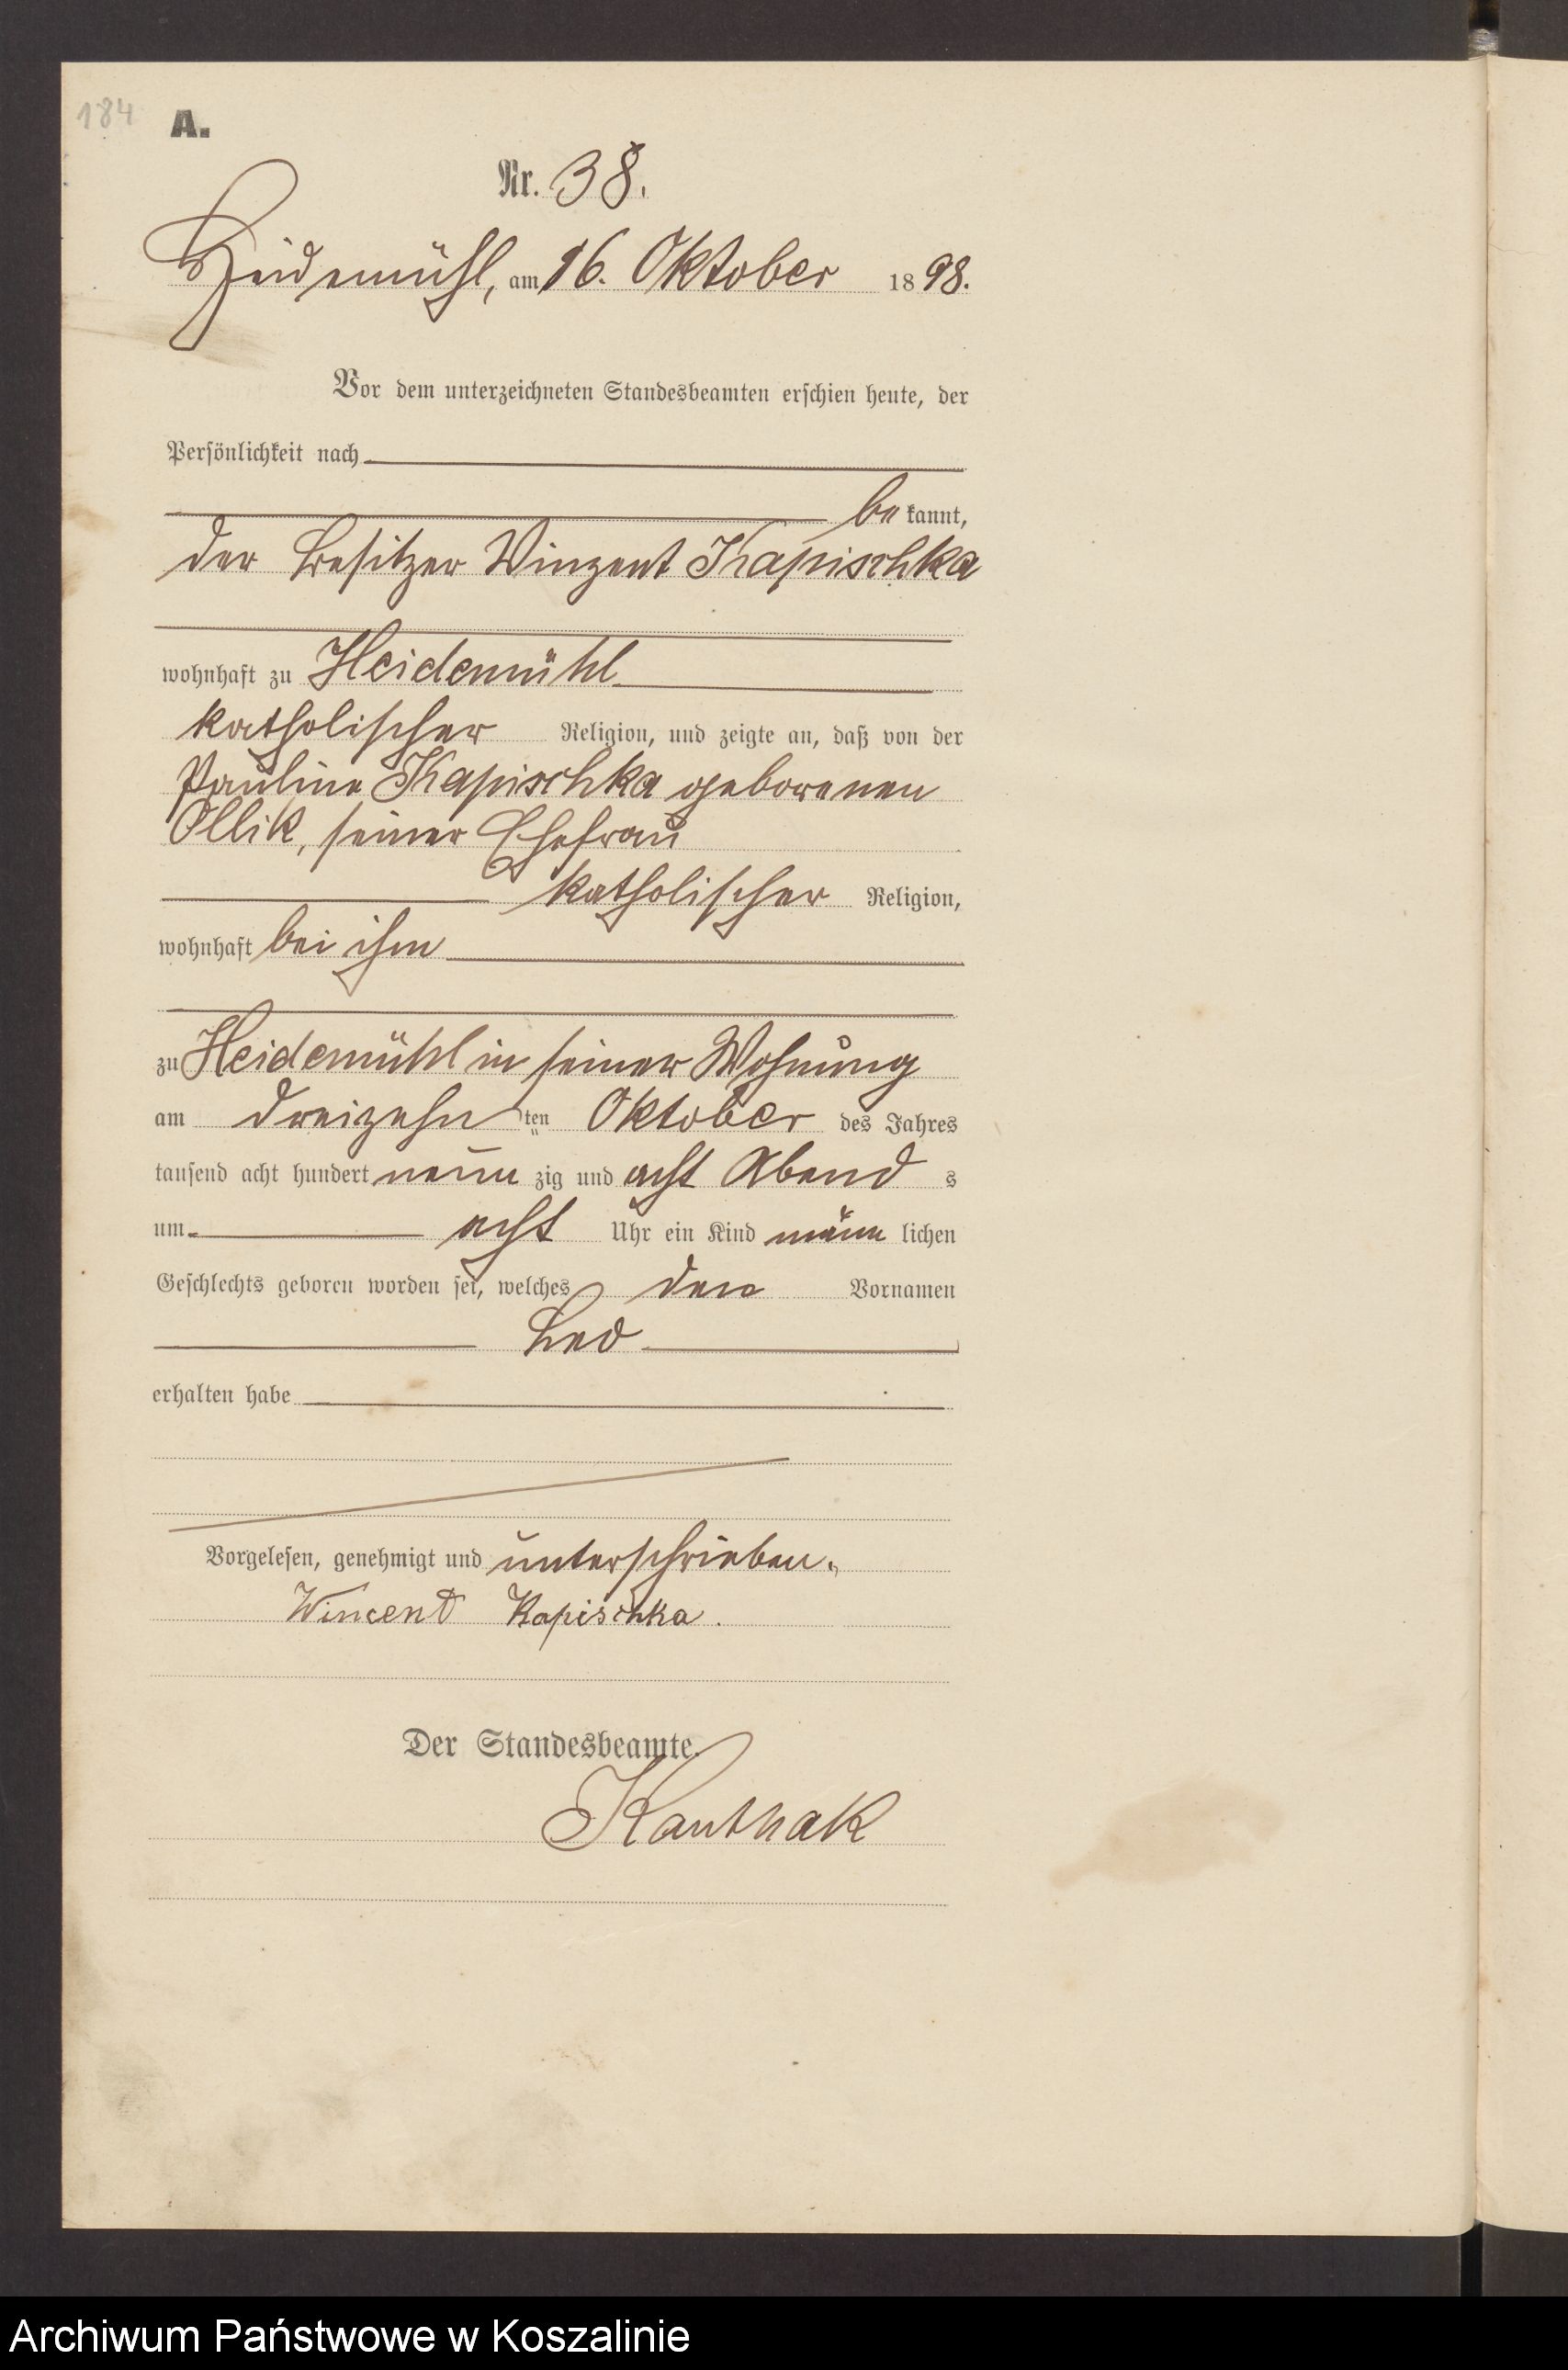 184
A.
Nr. 38.
Heidemühl, am 16. Oktober 1898.
Vor dem unterzeichneten Standesbeamten erschien heute, der
Persönlichkeit nach
bekannt,
der Besitzer Winzent Kapischka
wohnhaft zu Heidemühl
katholischer Religion, und zeigte an, daß von der
Pauline Kapischka geborenen
Ollik, seiner Ehefrau
katholischer Religion,
wohnhaft bei ihm
zu Heidemühl in seiner Wohnung
am dreizehnten Oktober des Jahres
tausend acht hundert neunzig und acht Abends
um acht Uhr ein Kind männlichen
Geschlechts geboren worden sei, welches den Vornamen
Leo
erhalten habe
Vorgelesen, genehmigt und unterschrieben.
Wincent Kapischka.
Der Standesbeamte.
Kanthak
Archiwum Państwowe w Koszalinie